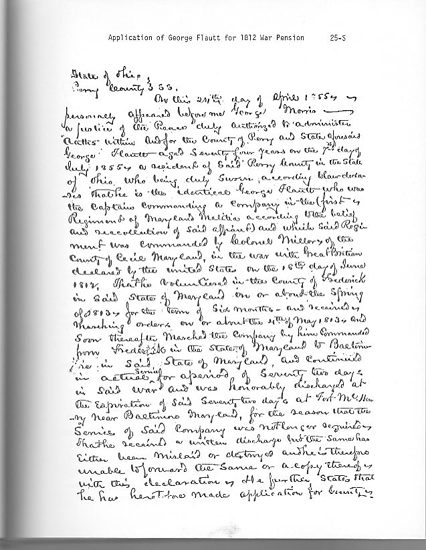 Application of George Flautt for 1812 War Pension 25-S
State of Ohio,
Perry County } SS.
On this 24th day of April 1855
personally appeared before me George Morris
a Justice of the Peace duly authorized to administer
Oathes within and for the County of Perry and State aforesaid
George Flautt aged Seventy four years on the 7th day of
July 1855 a resident of Said Perry County in the State
of Ohio, who being duly Sworn according to law declar-
es that he is the identical George Flautt who was
the Captain Commanding a Company in the (first)
Regiment of Maryland Melitia according to the belief
and reccollection of Said affiant) and which Said Regi-
ment was Commanded by Colonel Miller of the
County of Cecil Maryland, in the war with Great Britian
declared by the united States on the 18th day of June
1812, That he Volunteered in the County of Frederick
in Said State of Maryland on or about the Spring
of 1813 for the term of Six months and received
marching orders on or about the day of May 1813 and
Soon thereafter Marched the Company by him Commanded
from Frederick in the State of Maryland to Baltimo-
re in Said State of Maryland, and Continued
in actual Service for a period of Seventy two days
in Said War and was honorably discharged at
the Expiration of Said Seventy two days at Fort McHen-
ry near Baltimore Maryland, for the reason that the
Service of Said Company was not longer required
That he received a written discharge but the Same has
Either been mislaid or destroyed and he is therefore
unable to forward the Same or a copy thereof
with this declaration He further States that
he has heretofore made application for bounty